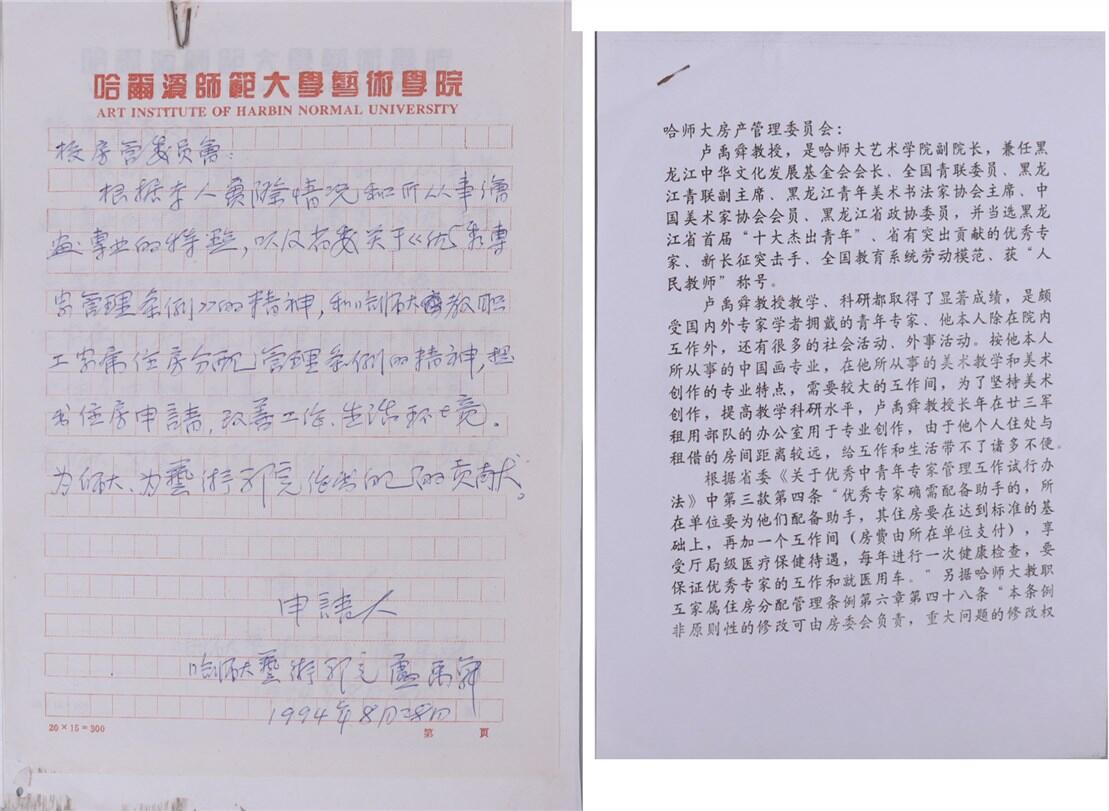 哈爾濱師範大學藝術學院
ART INSTITUTE OF HARBIN NORMAL UNIVERSITY
校房管委员會：
根据本人實際情况和所从事繪
画專业的特點，以及省委关于《优秀專
家管理条例》的精神，和哈师大教职
工家属住房分配管理条例的精神，提
出住房申請，改善工作、生活环境。
为师大、为藝術學院作出自己的贡献。
申請人
哈师大藝術學院 盧禹舜
1994年8月28日
20×15=300
第 頁
哈师大房产管理委员会：
卢禹舜教授，是哈师大艺术学院副院长，兼任黑
龙江中华文化发展基金会会长、全国青联委员、黑龙
江青联副主席、黑龙江青年美术书法家协会主席、中
国美术家协会会员、黑龙江省政协委员，并当选黑龙
江省首届“十大杰出青年”、省有突出贡献的优秀专
家、新长征突击手、全国教育系统劳动模范、获“人
民教师”称号。
卢禹舜教授教学、科研都取得了显著成绩，是颇
受国内外专家学者拥戴的青年专家、他本人除在院内
工作外，还有很多的社会活动、外事活动。按他本人
所从事的中国画专业，在他所从事的美术教学和美术
创作的专业特点，需要较大的工作间，为了坚持美术
创作，提高教学科研水平，卢禹舜教授长年在廿三军
租用部队的办公室用于专业创作，由于他个人住处与
租借的房间距离较远，给工作和生活带不了诸多不便。
根据省委《关于优秀中青年专家管理工作试行办
法》中第三款第四条“优秀专家确需配备助手的，所
在单位要为他们配备助手，其住房要在达到标准的基
础上，再加一个工作间（房费由所在单位支付），享
受厅局级医疗保健待遇，每年进行一次健康检查，要
保证优秀专家的工作和就医用车。”另据哈师大教职
工家属住房分配管理条例第六章第四十八条“本条例
非原则性的修改可由房委会负责，重大问题的修改权